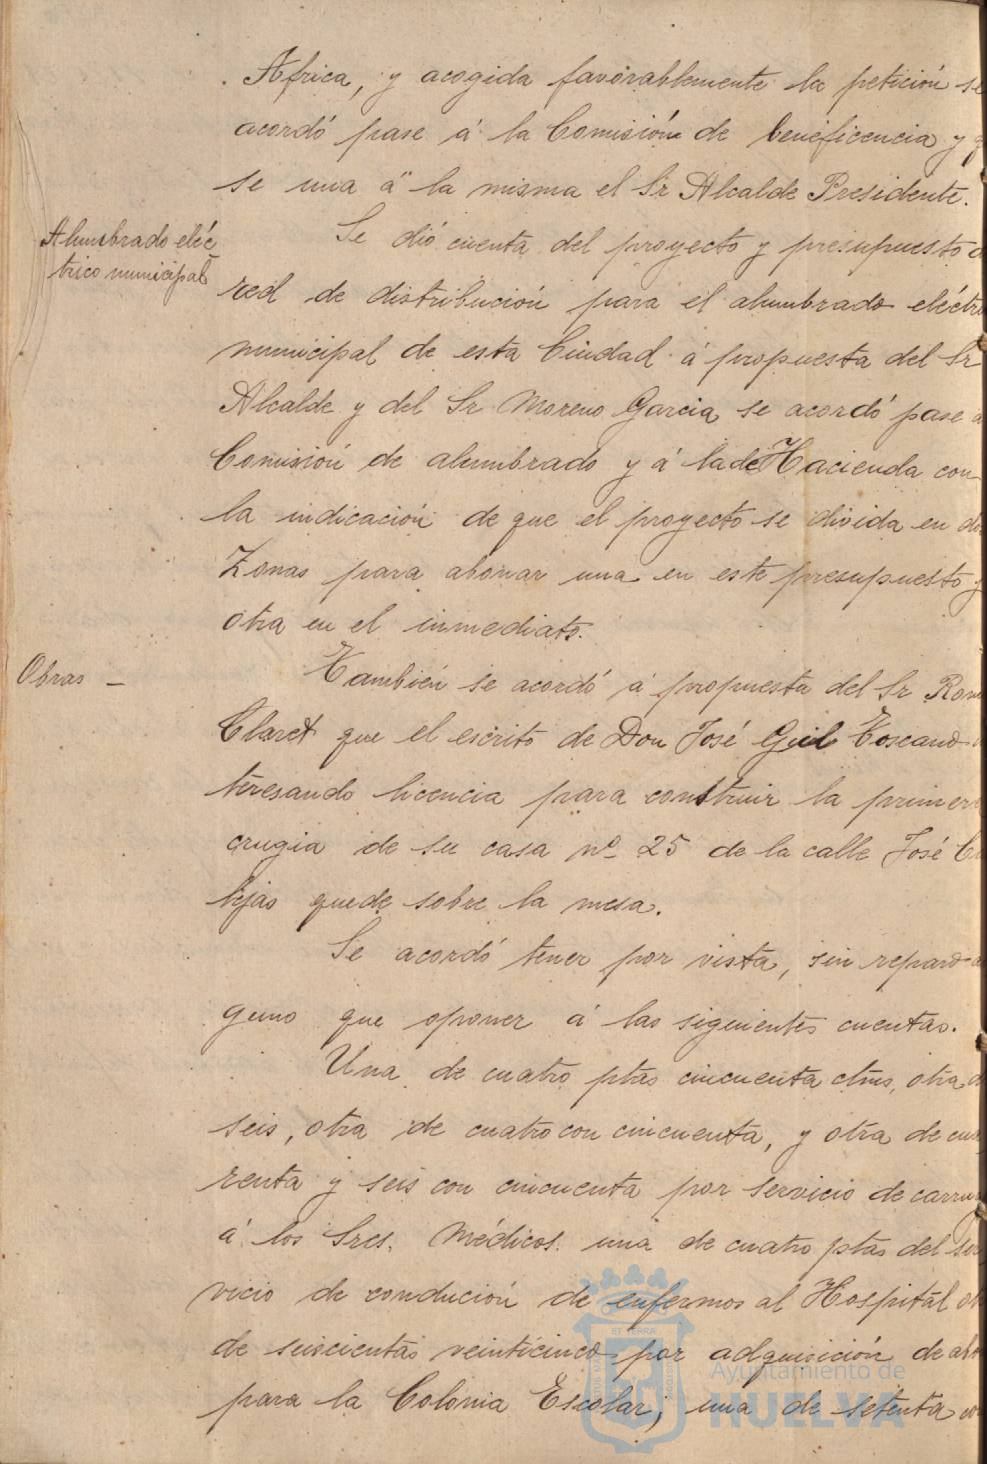 Africa, y acogida favorablemente la petición se
acordó pase á la Comisión de beneficencia y q
se una á la misma el Sr Alcalde Presidente.
Alumbrado eléc
trico municipal
Se dió cuenta del proyecto y presupuesto d
red de distribución para el alumbrado eléctri
municipal de esta Ciudad á propuesta del Sr
Alcalde y del Sr Moreno Garcia se acordó pase a
Comisión de alumbrado y á la de Hacienda con
la indicación de que el proyecto se divida en do
Zonas para abonar una en este presupuesto y
otra en el inmediato.
Obras –
También se acordó á propuesta del Sr
Claret que el escrito de Don José Guil Toscano
teresando licencia para construir la primer
crugia de su casa nº 25 de la calle José
quede sobre la mesa.
Se acordó tener por vista, sin reparo
guno que oponer á las siguientes cuentas.
Una de cuatro ptas cincuenta ctms, otra d
seis, otra de cuatro con cincuenta, y otra de cua
renta y seis con cincuenta por servicio de carrua
á los Sres. Médicos. una de cuatro ptas del ser
vicio de condución de enfermos al Hospital ot
de seiscientas veinticinco por adquisición de
para la Colonia Escolar, una de setenta
ET TERRA
Ayuntamiento de
HUELVA